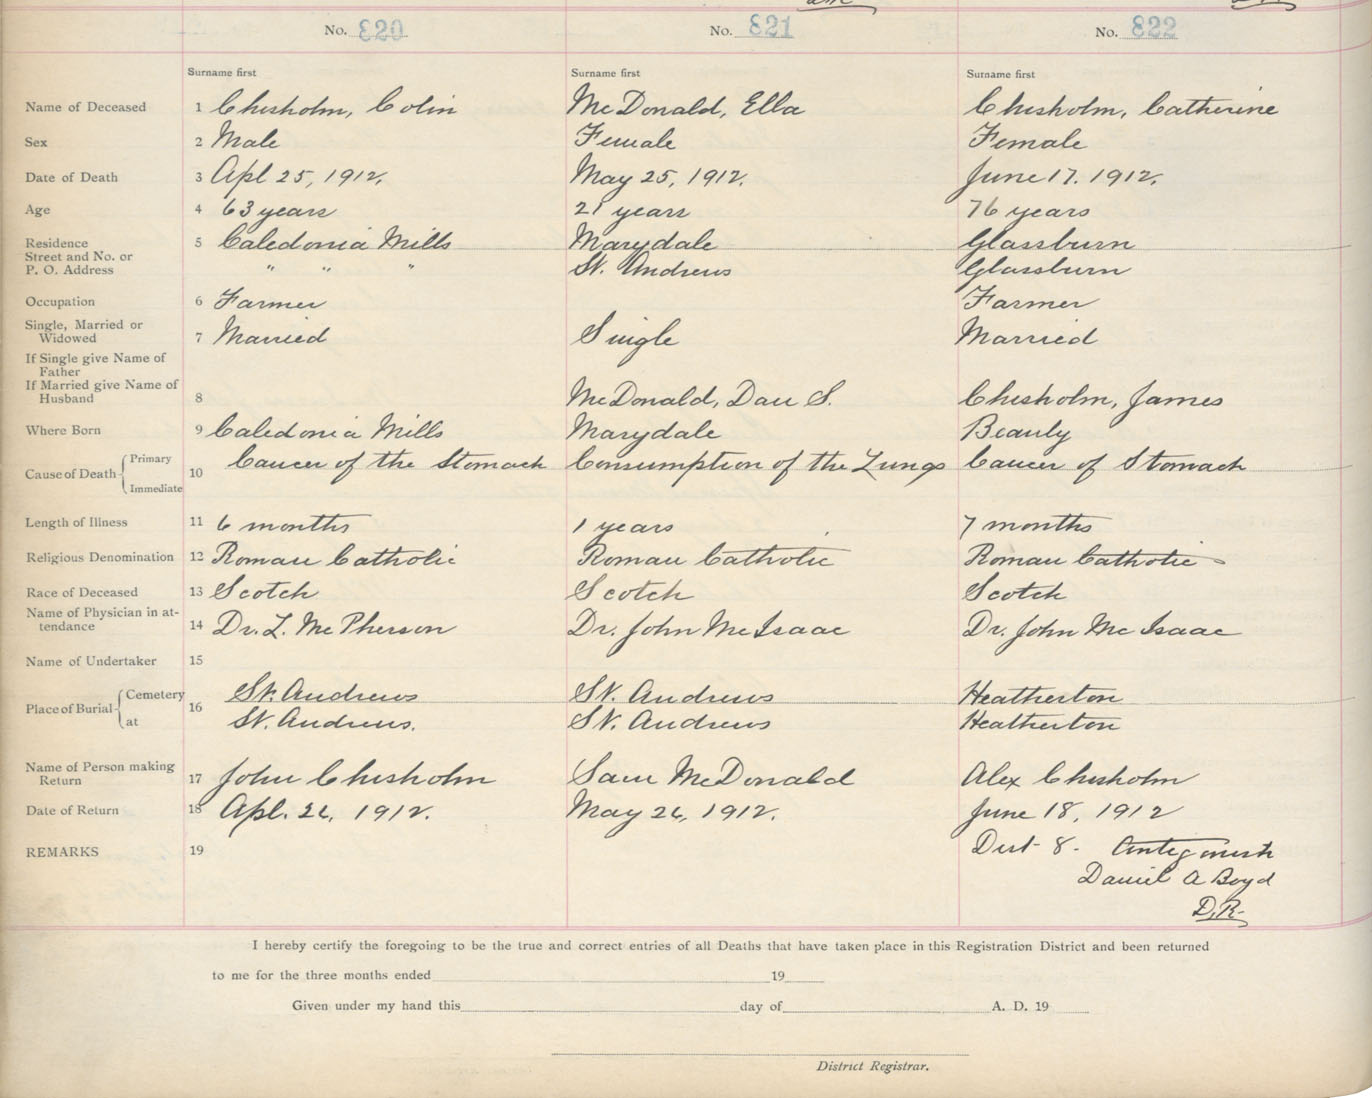 No. 820 No. 821 No. 822
Surname first Surname first Surname first
Name of Deceased 1 Chisholm, Colin McDonald, Ella Chisholm, Catherine
Sex 2 Male Female Female
Date of Death 3 Apl 25, 1912. May 25, 1912. June 17. 1912.
Age 4 63 years 21 years 76 years
Residence 5 Caledonia Mills Marydale Glassburn
Street and No. or
P. O. Address " " " St. Andrews Glassburn
Occupation 6 Farmer Farmer
Single, Married or
Widowed 7 Married Single Married
If Single give Name of
Father
If Married give Name of
Husband 8 McDonald, Dan S. Chisholm, James
Where Born 9 Caledonia Mills Marydale Beauly
Cause of Death Primary 10 Cancer of the Stomach Consumption of the Lungs Cancer of Stomach
Immediate
Length of Illness 11 6 months 1 years 7 months
Religious Denomination 12 Roman Catholic Roman Catholic Roman Catholic
Race of Deceased 13 Scotch Scotch Scotch
Name of Physician in at-
tendance 14 Dr. L. McPherson Dr. John McIsaac Dr. John McIsaac
Name of Undertaker 15
Place of Burial Cemetery 16 St. Andrews St. Andrews Heatherton
at St. Andrews. St. Andrews Heatherton
Name of Person making
Return 17 John Chisholm Sam McDonald Alex Chisholm
Date of Return 18 Apl. 26, 1912. May 26, 1912. June 18, 1912
REMARKS 19 Dist 8. Antigonish
Daniel A Boyd
D.R.
I hereby certify the foregoing to be the true and correct entries of all Deaths that have taken place in this Registration District and been returned
to me for the three months ended 19
Given under my hand this day of A. D. 19
District Registrar.